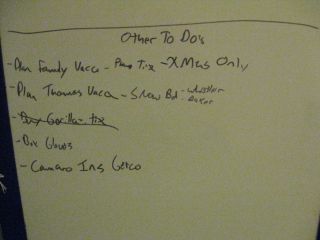 Other To Do's
- Plan Family Vaca - Plane Tix - XMas Only
- Plan Thomas Vaca - Snow Bd - Whistler
Baker
- Buy Gorillaz tix
- Box Gloves
- Camaro Ins Geico